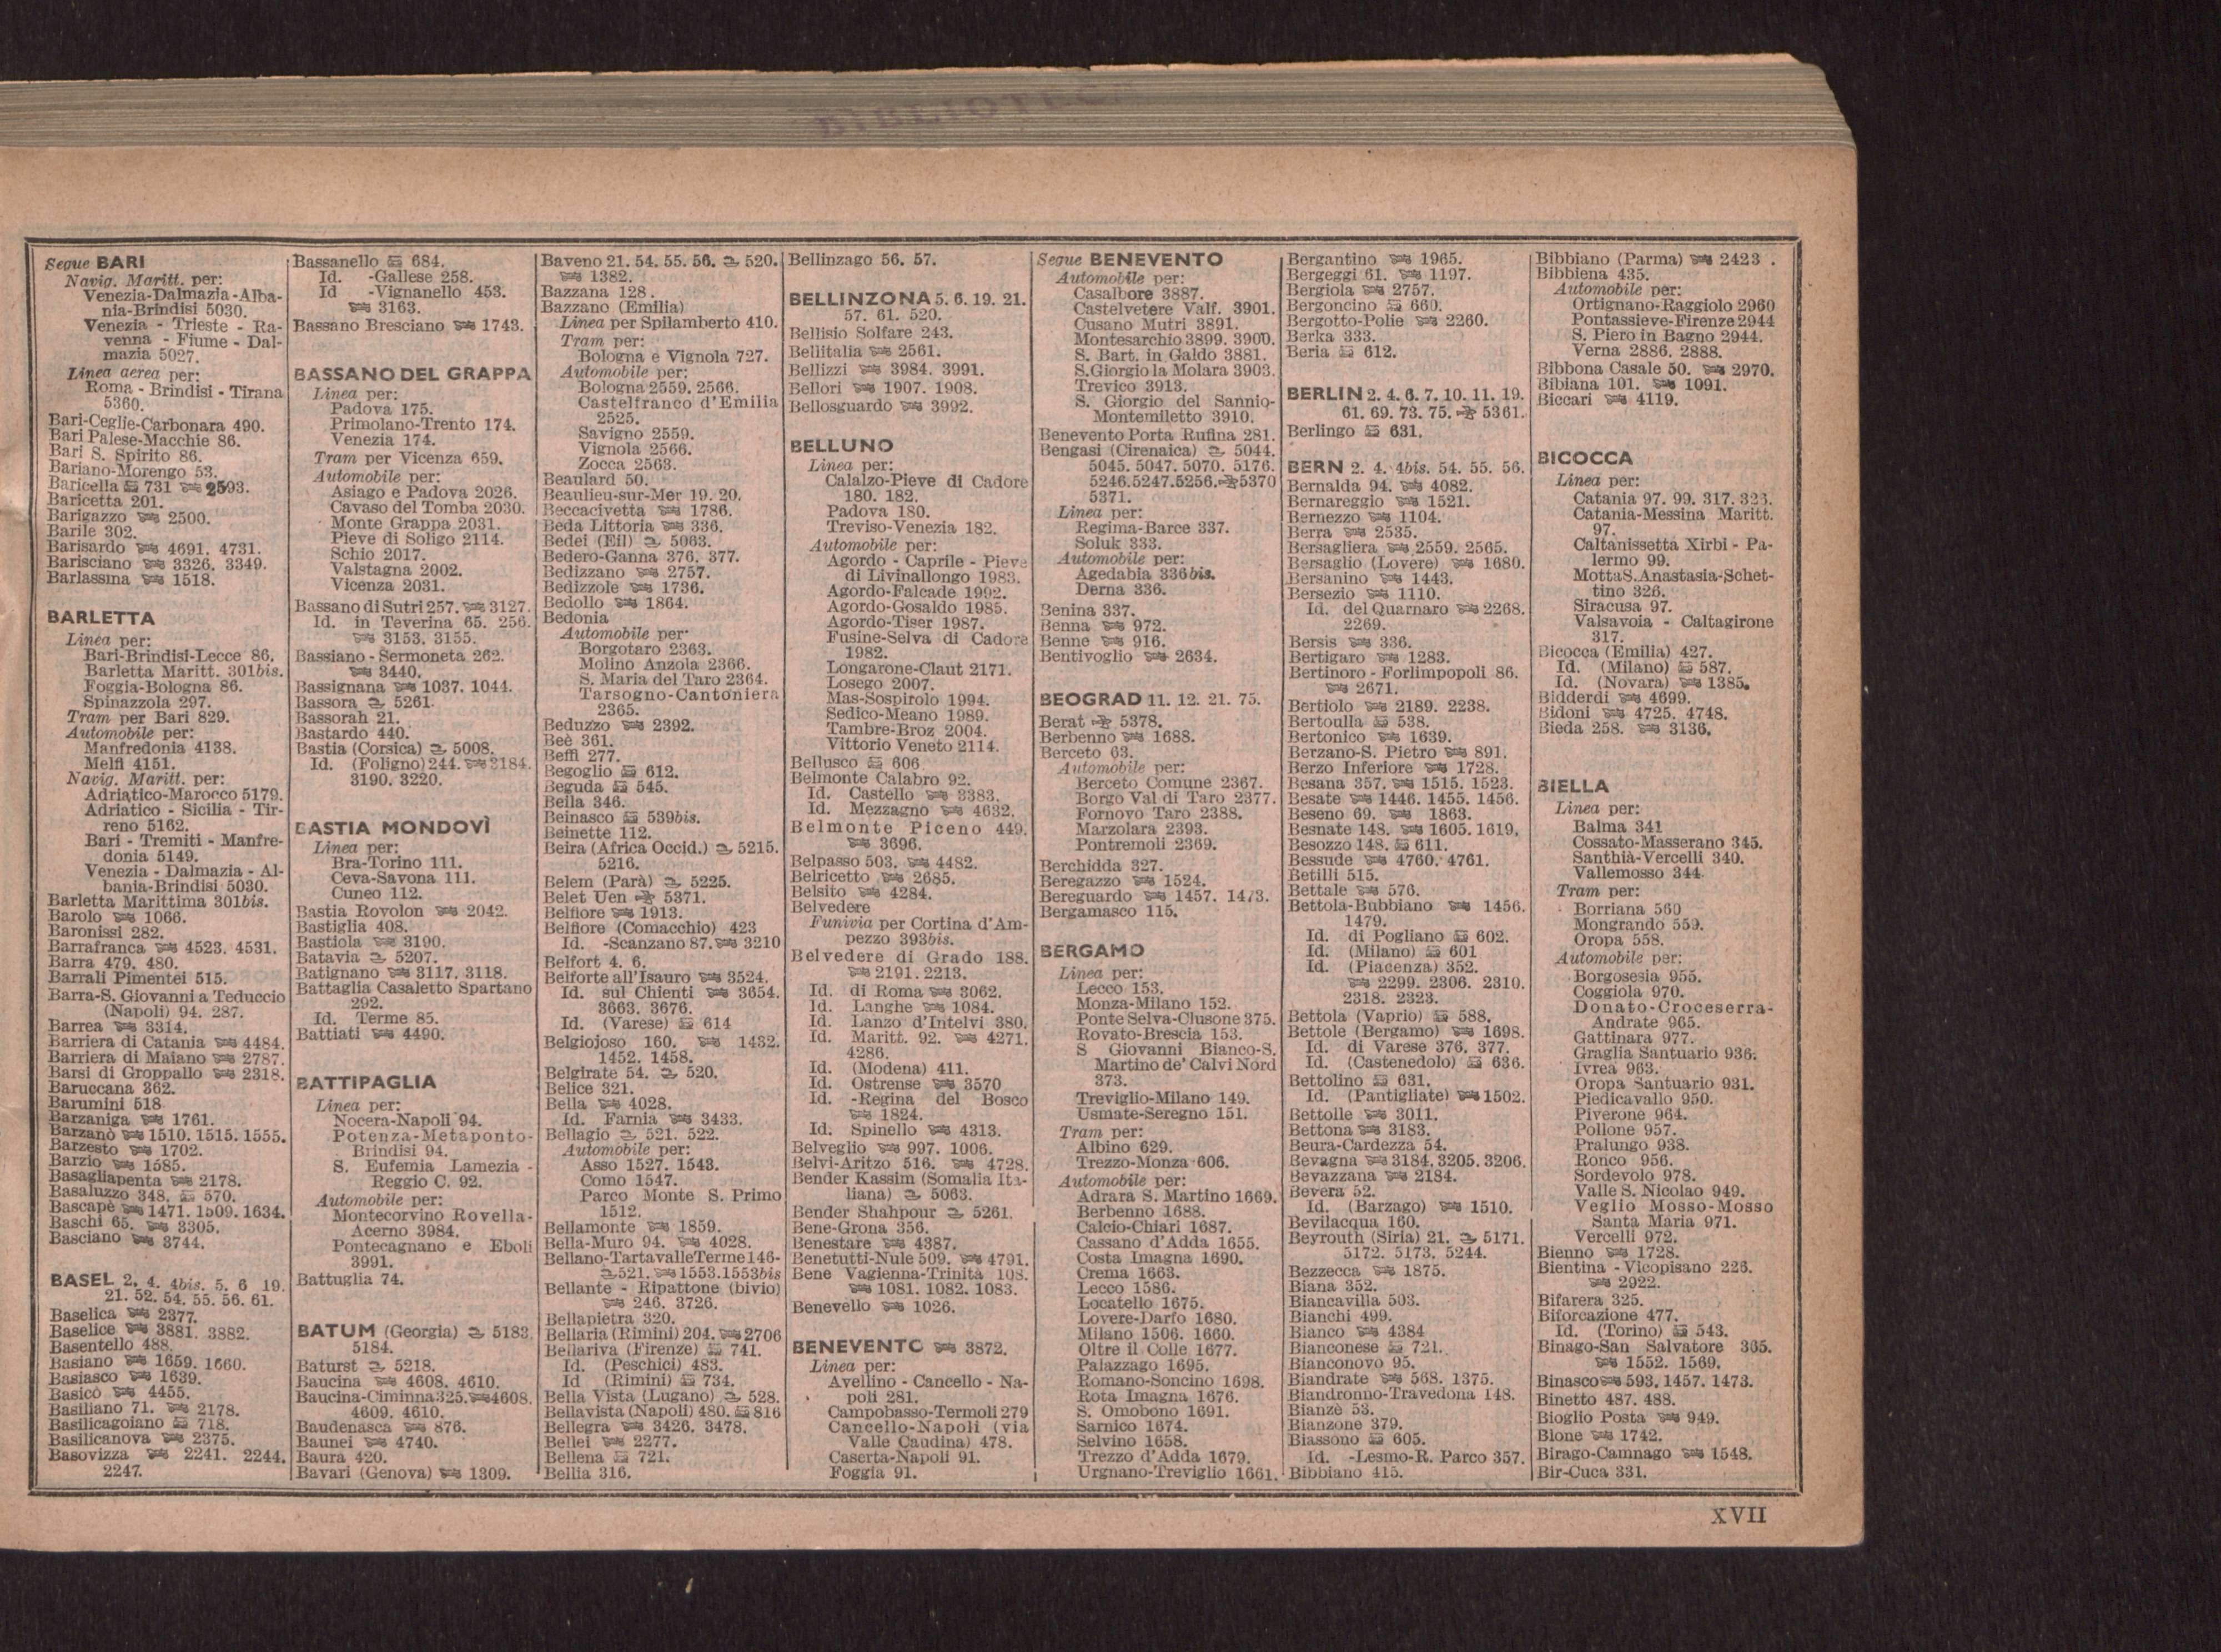 BIBLIOTECA
Segue BARI
Navig. Maritt. per:
Venezia-Dalmazia-Alba-
nia-Brindisi 5030.
Venezia - Trieste - Ra-
venna - Fiume - Dal-
mazia 5027.
Linea aerea per:
Roma - Brindisi - Tirana
5360.
Bari-Ceglie-Carbonara 490.
Bari Palese-Macchie 86.
Bari S. Spirito 86.
Bariano-Morengo 53.
Baricella 731 2593.
Baricetta 201.
Barigazzo 2500.
Barile 302.
Barisardo 4691. 4731.
Barisciano 3326. 3349.
Barlassina 1518.
BARLETTA
Linea per:
Bari-Brindisi-Lecce 86.
Barletta Maritt. 301bis.
Foggia-Bologna 86.
Spinazzola 297.
Tram per Bari 829.
Automobile per:
Manfredonia 4138.
Melfi 4151.
Navig. Maritt. per:
Adriatico-Marocco 5179.
Adriatico - Sicilia - Tir-
reno 5162.
Bari - Tremiti - Manfre-
donia 5149.
Venezia - Dalmazia - Al-
bania-Brindisi 5030.
Barletta Marittima 301bis.
Barolo 1066.
Baronissi 282.
Barrafranca 4523. 4531.
Barra 479. 480.
Barrali Pimentei 515.
Barra-S. Giovanni a Teduccio
(Napoli) 94. 287.
Barrea 3314.
Barriera di Catania 4484.
Barriera di Maiano 2787.
Barsi di Groppallo 2318.
Baruccana 362.
Barumini 518
Barzaniga 1761.
Barzanò 1510. 1515. 1555.
Barzesto 1702.
Barzio 1585.
Basagliapenta 2178.
Basaluzzo 348. 570.
Bascapè 1471. 1509. 1634.
Baschi 65. 3305.
Basciano 3744.
BASEL 2. 4. 4bis. 5. 6 19.
21. 52. 54. 55. 56. 61.
Baselica 2377.
Baselice 3881. 3882.
Basentello 488.
Basiano 1659. 1660.
Basiasco 1639.
Basicò 4455.
Basiliano 71. 2178.
Basilicagoiano 718.
Basilicanova 2375.
Basovizza 2241. 2244.
2247.
Bassanello 684.
Id. -Gallese 258.
Id -Vignanello 453.
3163.
Bassano Bresciano 1743.
BASSANO DEL GRAPPA
Linea per:
Padova 175.
Primolano-Trento 174.
Venezia 174.
Tram per Vicenza 659.
Automobile per:
Asiago e Padova 2026.
Cavaso del Tomba 2030.
Monte Grappa 2031.
Pieve di Soligo 2114.
Schio 2017.
Valstagna 2002.
Vicenza 2031.
Bassano di Sutri 257. 3127.
Id. in Teverina 65. 256.
3153. 3155.
Bassiano - Sermoneta 262.
3440.
Bassignana 1037. 1044.
Bassora 5261.
Bassorah 21.
Bastardo 440.
Bastia (Corsica) 5008.
Id. (Foligno) 244. 3184.
3190. 3220.
BASTIA MONDOVÌ
Linea per:
Bra-Torino 111.
Ceva-Savona 111.
Cuneo 112.
Bastia Rovolon 2042.
Bastiglia 408.
Bastiola 3190.
Batavia 5207.
Batignano 3117. 3118.
Battaglia Casaletto Spartano
292.
Id. Terme 85.
Battiati 4490.
BATTIPAGLIA
Linea per:
Nocera-Napoli 94.
Potenza-Metaponto-
Brindisi 94.
S. Eufemia Lamezia -
Reggio C. 92.
Automobile per:
Montecorvino Rovella-
Acerno 3984.
Pontecagnano e Eboli
3991.
Battuglia 74.
BATUM (Georgia) 5183
5184.
Baturst 5218.
Baucina 4608. 4610.
Baucina-Ciminna 325. 4608.
4609. 4610.
Baudenasca 876.
Baunei 4740.
Baura 420.
Bavari (Genova) 1309.
Baveno 21. 54. 55. 56. 520.
1382.
Bazzana 128.
Bazzano (Emilia)
Linea per Spilamberto 410.
Tram per:
Bologna e Vignola 727.
Automobile per:
Bologna 2559. 2566.
Castelfranco d'Emilia
2525.
Savigno 2559.
Vignola 2566.
Zocca 2563.
Beaulard 50.
Beaulieu-sur-Mer 19. 20.
Beccacivetta 1786.
Beda Littoria 336.
Bedei (Eil) 5063.
Bedero-Ganna 376. 377.
Bedizzano 2757.
Bedizzole 1736.
Bedollo 1864.
Bedonia
Automobile per
Borgotaro 2363.
Molino Anzola 2366.
S. Maria del Taro 2364.
Tarsogno-Cantoniera
2365.
Beduzzo 2392.
Beè 361.
Beffi 277.
Begoglio 612.
Beguda 545.
Beila 346.
Beinasco 539bis.
Beinette 112.
Beira (Africa Occid.) 5215.
5216.
Belem (Parà) 5225.
Belet Uen 5371.
Belfiore 1913.
Belfiore (Comacchio) 423
Id. -Scanzano 87. 3210
Belfort 4. 6.
Belforte all'Isauro 3524.
Id. sul Chienti 3654.
3663. 3676.
Id. (Varese) 614
Belgiojoso 160. 1432.
1452. 1458.
Belgirate 54. 520.
Belice 321.
Bella 4028.
Id. Farnia 3433.
Bellagio 521. 522.
Automobile per:
Asso 1527. 1543.
Como 1547.
Parco Monte S. Primo
1512.
Bellamonte 1859.
Bella-Muro 94. 4028.
Bellano-Tartavalle Terme 146-
521. 1553. 1553bis
Bellante - Ripattone (bivio)
246. 3726.
Bellapietra 320.
Bellaria (Rimini) 204. 2706
Bellariva (Firenze) 741.
Id. (Peschici) 483.
Id (Rimini) 734.
Bella Vista (Lugano) 528.
Bellavista (Napoli) 480. 816
Bellegra 3426. 3478.
Bellei 2277.
Bellena 721.
Bellia 316.
Bellinzago 56. 57.
BELLINZONA 5. 6. 19. 21.
57. 61. 520.
Bellisio Solfare 243.
Bellitalia 2561.
Bellizzi 3984. 3991.
Bellori 1907. 1908.
Bellosguardo 3992.
BELLUNO
Linea per:
Calalzo-Pieve di Cadore
180. 182.
Padova 180.
Treviso-Venezia 182.
Automobile per:
Agordo - Caprile - Pieve
di Livinallongo 1983.
Agordo-Falcade 1992.
Agordo-Gosaldo 1985.
Agordo-Tiser 1987.
Fusine-Selva di Cadore
1982.
Longarone-Claut 2171.
Losego 2007.
Mas-Sospirolo 1994.
Sedico-Meano 1989.
Tambre-Broz 2004.
Vittorio Veneto 2114.
Bellusco 606
Belmonte Calabro 92.
Id. Castello 3383.
Id. Mezzagno 4632.
Belmonte Piceno 449.
3696.
Belpasso 503. 4482.
Belricetto 2685.
Belsito 4284.
Belvedere
Funivia per Cortina d'Am-
pezzo 393bis.
Belvedere di Grado 188.
2191. 2213.
Id. di Roma 3062.
Id. Langhe 1084.
Id. Lanzo d'Intelvi 380.
Id. Maritt. 92. 4271.
4286.
Id. (Modena) 411.
Id. Ostrense 3570
Id. -Regina del Bosco
1824.
Id. Spinello 4313.
Belveglio 997. 1006.
Belvi-Aritzo 516. 4728.
Bender Kassim (Somalia Ita-
liana) 5063.
Bender Shahpour 5261.
Bene-Grona 356.
Benestare 4387.
Benetutti-Nule 509. 4791.
Bene Vagienna-Trinità 108.
1081. 1082. 1083.
Benevello 1026.
BENEVENTO 3872.
Linea per:
Avellino - Cancello - Na-
poli 281.
Campobasso-Termoli 279
Cancello-Napoli (via
Valle Caudina) 478.
Caserta-Napoli 91.
Foggia 91.
Segue BENEVENTO
Automobile per:
Casalbore 3887.
Castelvetere Valf. 3901.
Cusano Mutri 3891.
Montesarchio 3899. 3900.
S. Bart. in Galdo 3881.
S. Giorgio la Molara 3903.
Trevico 3913.
S. Giorgio del Sannio-
Montemiletto 3910.
Benevento Porta Rufina 281.
Bengasi (Cirenaica) 5044.
5045. 5047. 5070. 5176.
5246. 5247. 5256. 5370
5371.
Linea per:
Regima-Barce 337.
Soluk 333.
Automobile per:
Agedabia 336bis.
Derna 336.
Benina 337.
Benna 972.
Benne 916.
Bentivoglio 2634.
BEOGRAD 11. 12. 21. 75.
Berat 5378.
Berbenno 1688.
Berceto 63.
Automobile per:
Berceto Comune 2367.
Borgo Val di Taro 2377.
Fornovo Taro 2388.
Marzolara 2393.
Pontremoli 2369.
Berchidda 327.
Beregazzo 1524.
Bereguardo 1457. 1473.
Bergamasco 115.
BERGAMO
Linea per:
Lecco 153.
Monza-Milano 152.
Ponte Selva-Clusone 375.
Rovato-Brescia 153.
S Giovanni Bianco-S.
Martino de' Calvi Nord
373.
Treviglio-Milano 149.
Usmate-Seregno 151.
Tram per:
Albino 629.
Trezzo-Monza 606.
Automobile per:
Adrara S. Martino 1669.
Berbenno 1688.
Calcio-Chiari 1687.
Cassano d'Adda 1655.
Costa Imagna 1690.
Crema 1663.
Lecco 1586.
Locatello 1675.
Lovere-Darfo 1680.
Milano 1506. 1660.
Oltre il Colle 1677.
Palazzago 1695.
Romano-Soncino 1698.
Rota Imagna 1676.
S. Omobono 1691.
Sarnico 1674.
Selvino 1658.
Trezzo d'Adda 1679.
Urgnano-Treviglio 1661.
Bergantino 1965.
Bergeggi 61. 1197.
Bergiola 2757.
Bergoncino 660.
Bergotto-Polie 2260.
Berka 333.
Beria 612.
BERLIN 2. 4. 6. 7. 10. 11. 19.
61. 69. 73. 75. 5361.
Berlingo 631.
BERN 2. 4. 4bis. 54. 55. 56.
Bernalda 94. 4082.
Bernareggio 1521.
Bernezzo 1104.
Berra 2535.
Bersagliera 2559. 2565.
Bersaglio (Lovere) 1680.
Bersanino 1443.
Bersezio 1110.
Id. del Quarnaro 2268.
2269.
Bersis 336.
Bertigaro 1283.
Bertinoro - Forlimpopoli 86.
2671.
Bertiolo 2189. 2238.
Bertoulla 538.
Bertonico 1639.
Berzano-S. Pietro 891.
Berzo Inferiore 1728.
Besana 357. 1515. 1523.
Besate 1446. 1455. 1456.
Beseno 69. 1863.
Besnate 148. 1605. 1619.
Besozzo 148. 611.
Bessude 4760. 4761.
Betilli 515.
Bettale 576.
Bettola-Bubbiano 1456.
1479.
Id. di Pogliano 602.
Id. (Milano) 601
Id. (Piacenza) 352.
2299. 2306. 2310.
2318. 2323.
Bettola (Vaprio) 588.
Bettole (Bergamo) 1698.
Id. di Varese 376. 377.
Id. (Castenedolo) 636.
Bettolino 631.
Id. (Pantigliate) 1502.
Bettolle 3011.
Bettona 3183.
Beura-Cardezza 54.
Bevagna 3184. 3205. 3206.
Bevazzana 2184.
Bevera 52.
Id. (Barzago) 1510.
Bevilacqua 160.
Beyrouth (Siria) 21. 5171.
5172. 5173. 5244.
Bezzecca 1875.
Biana 352.
Biancavilla 503.
Bianchi 499.
Bianco 4384
Bianconese 721.
Bianconovo 95.
Biandrate 568. 1375.
Biandronno-Travedona 148.
Bianzè 53.
Bianzone 379.
Biassono 605.
Id. -Lesmo-R. Parco 357.
Bibbiano 415.
Bibbiano (Parma) 2423.
Bibbiena 435.
Automobile per:
Ortignano-Raggiolo 2960
Pontassieve-Firenze 2944
S. Piero in Bagno 2944.
Verna 2886. 2888.
Bibbona Casale 50. 2970.
Bibiana 101. 1091.
Biccari 4119.
BICOCCA
Linea per:
Catania 97. 99. 317. 323.
Catania-Messina Maritt.
97.
Caltanissetta Xirbi - Pa-
lermo 99.
Motta S. Anastasia-Schet-
tino 326.
Siracusa 97.
Valsavoia - Caltagirone
317.
Bicocca (Emilia) 427.
Id. (Milano) 587.
Id. (Novara) 1385.
Bidderdi 4699.
Bidoni 4725. 4748.
Bieda 258. 3136.
BIELLA
Linea per:
Balma 341
Cossato-Masserano 345.
Santhià-Vercelli 340.
Vallemosso 344
Tram per:
Borriana 560
Mongrando 559.
Oropa 558.
Automobile per:
Borgosesia 955.
Coggiola 970.
Donato-Croceserra-
Andrate 965.
Gattinara 977.
Graglia Santuario 936.
Ivrea 963.
Oropa Santuario 931.
Piedicavallo 950.
Piverone 964.
Pollone 957.
Pralungo 938.
Ronco 956.
Sordevolo 978.
Valle S. Nicolao 949.
Veglio Mosso-Mosso
Santa Maria 971.
Vercelli 972.
Bienno 1728.
Bientina - Vicopisano 226.
2022.
Bifarera 325.
Biforcazione 477.
Id. (Torino) 543.
Binago-San Salvatore 365.
1552. 1569.
Binasco 593. 1457. 1473.
Binetto 487. 488.
Bioglio Posta 949.
Bione 1742.
Birago-Camnago 1548.
Bir-Cuca 331.
XVII